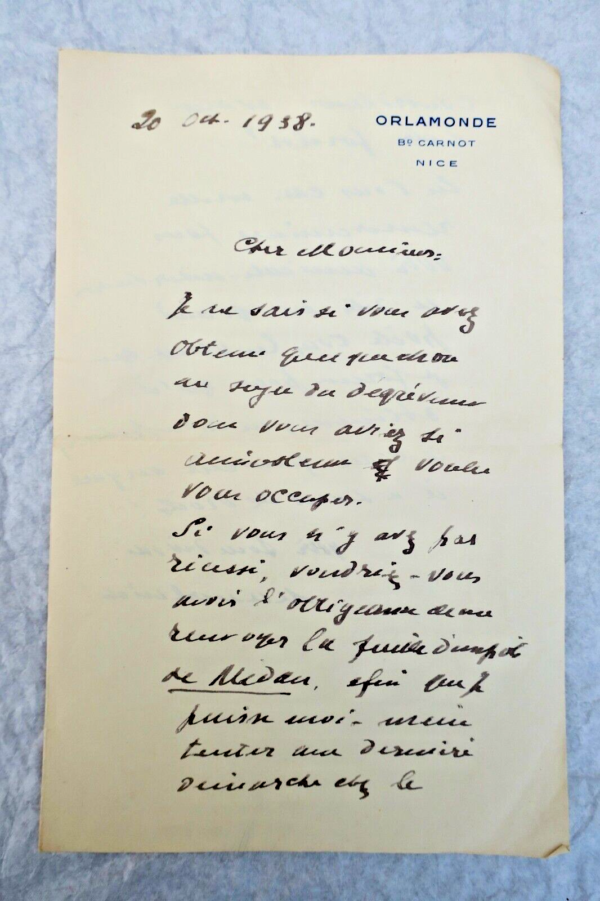 20 Oct. 1938.
ORLAMONDE
Bᴅ CARNOT
NICE
Cher Monsieur:
Je ne sais si vous avez
obtenu quelque chose
au sujet du dégrèvement
dont vous aviez si
aimablement voulu
vous occuper.
Si vous n'y avez pas
réussi, voudriez-vous
avoir l'obligeance de me
renvoyer la feuille d'impôt
de Médan, afin que je
puisse moi-même
tenter une dernière
démarche chez le